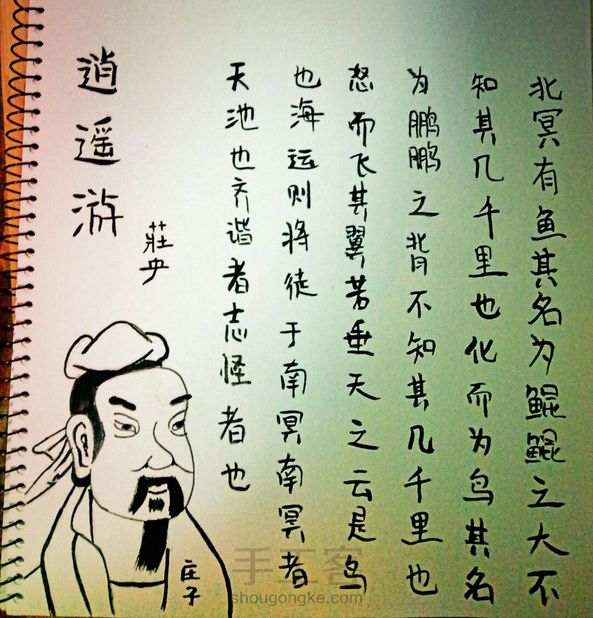 北冥有鱼其名为鲲鲲之大不
知其几千里也化而为鸟其名
为鹏鹏之背不知其几千里也
怒而飞其翼若垂天之云是鸟
也海运则将徙于南冥南冥者
天池也齐谐者志怪者也
逍遥游
莊
庄子
手工客
shougongke.com